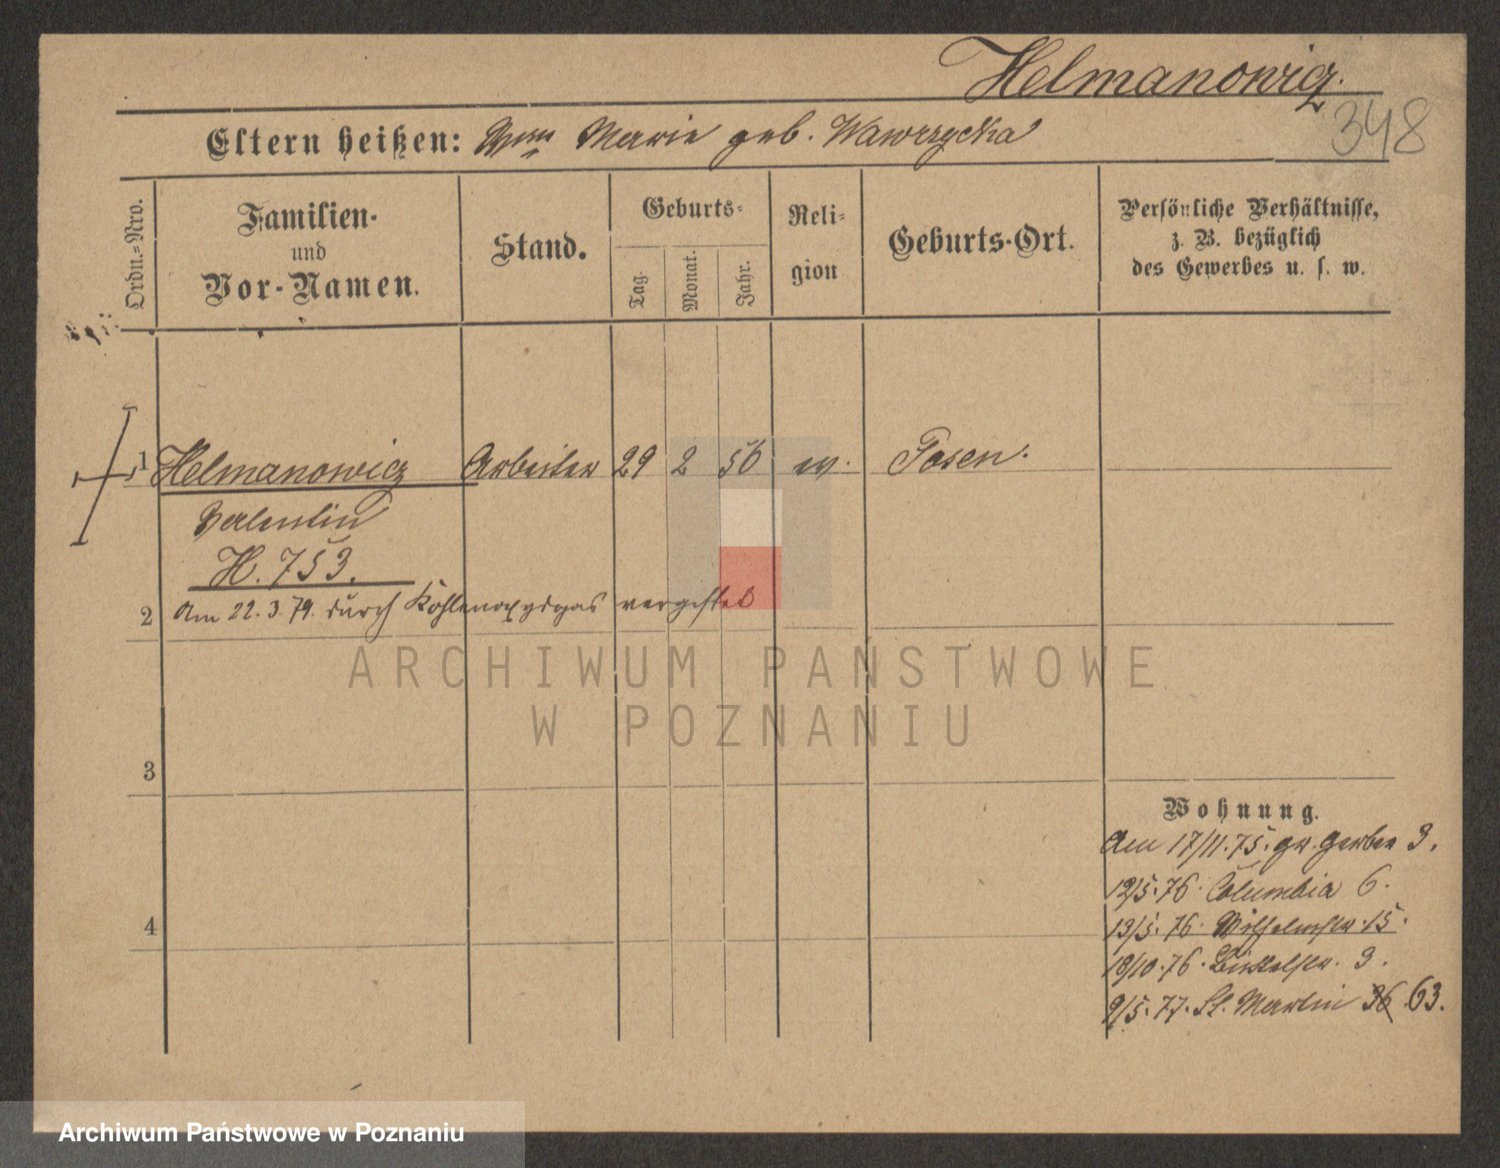 Helmanowicz.
348
Eltern heißen: Wwe Marie geb. Wawrzycka
Ordn.=Nro.
Familien-
und
Vor-Namen.
Stand.
Geburts-
Tag.
Monat.
Jahr.
Reli-
gion
Geburts-Ort.
Persönliche Verhältnisse,
z. B. bezüglich
des Gewerbes u. s. w.
1 Helmanowicz Arbeiter 29 2 56 ev. Posen.
Valentin
H. 753.
2 Am 22.3.79. durch Kohlenoxydgas vergiftet
ARCHIWUM PANSTWOWE
W POZNANIU
3
Wohnung.
Am 17/11.75. gr. Gerber 3.
12/5.76. Columbia 6.
4
13/5.76. Wilhelmstr. 15.
18/10.76. 3.
9/5.77. St. Martin 36. 63.
Archiwum Państwowe w Poznaniu